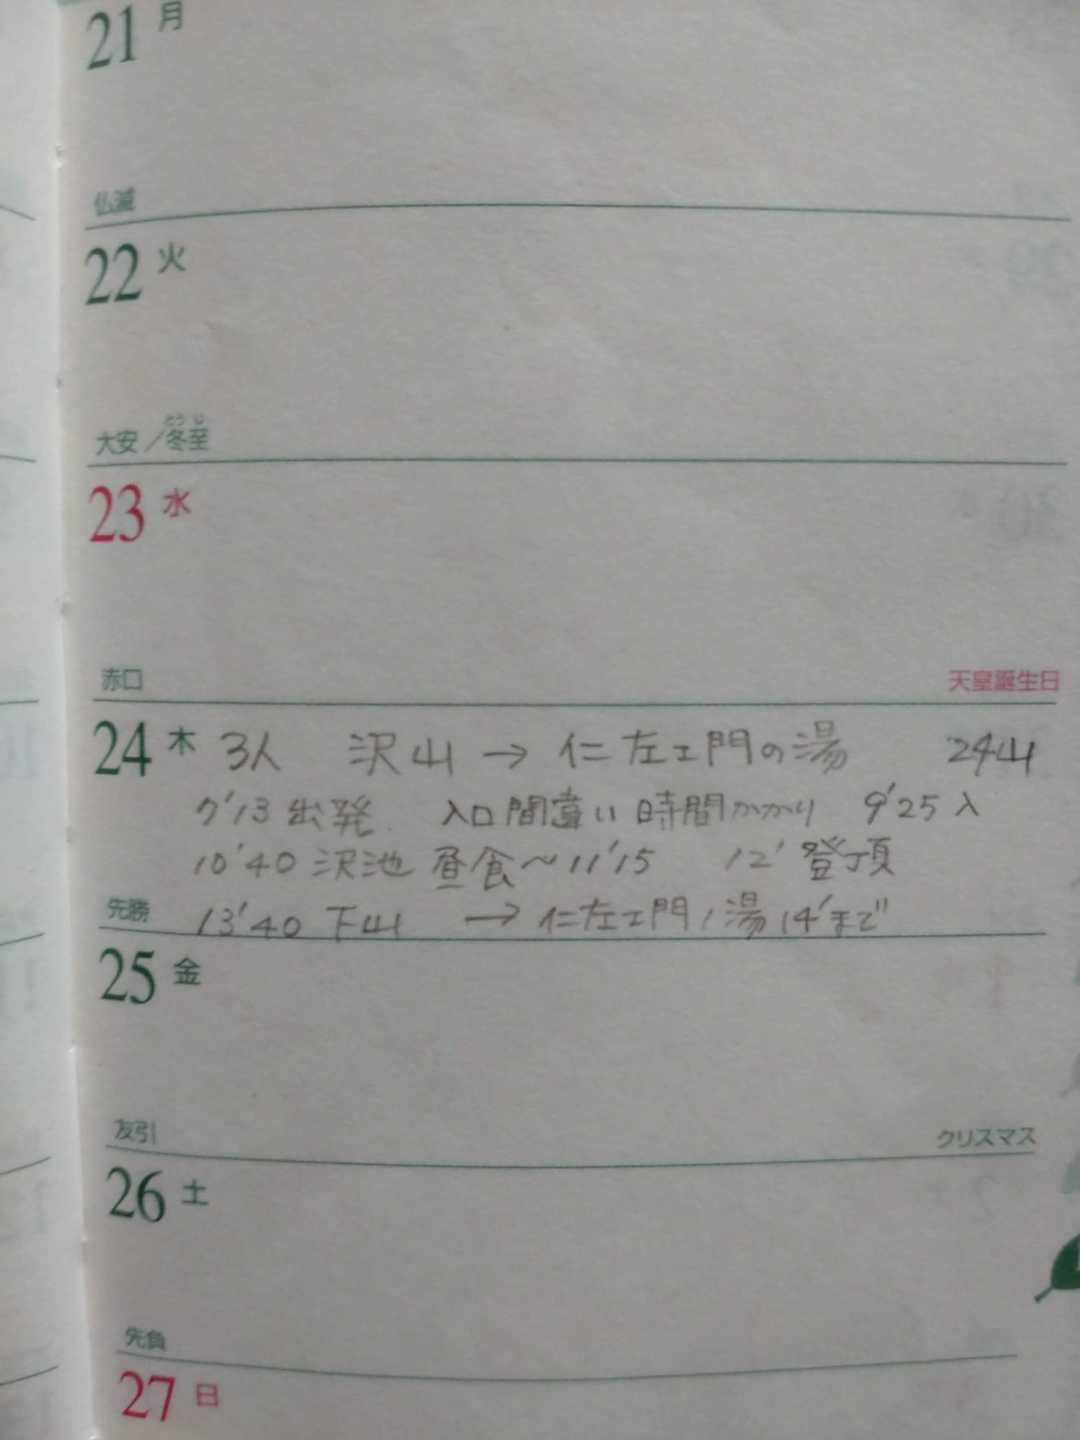 21 月
仏滅
22 火
大安／冬至
とうじ
23 水
赤口 天皇誕生日
24 木 3人 沢山 → 仁左エ門の湯 24山
7'13 出発 入口間違い時間かかり 9'25 入
10'40 沢池 昼食〜11'15 12' 登頂
先勝 13'40 下山 → 仁左エ門ノ湯 14'まで
25 金
友引 クリスマス
26 土
先負
27 日